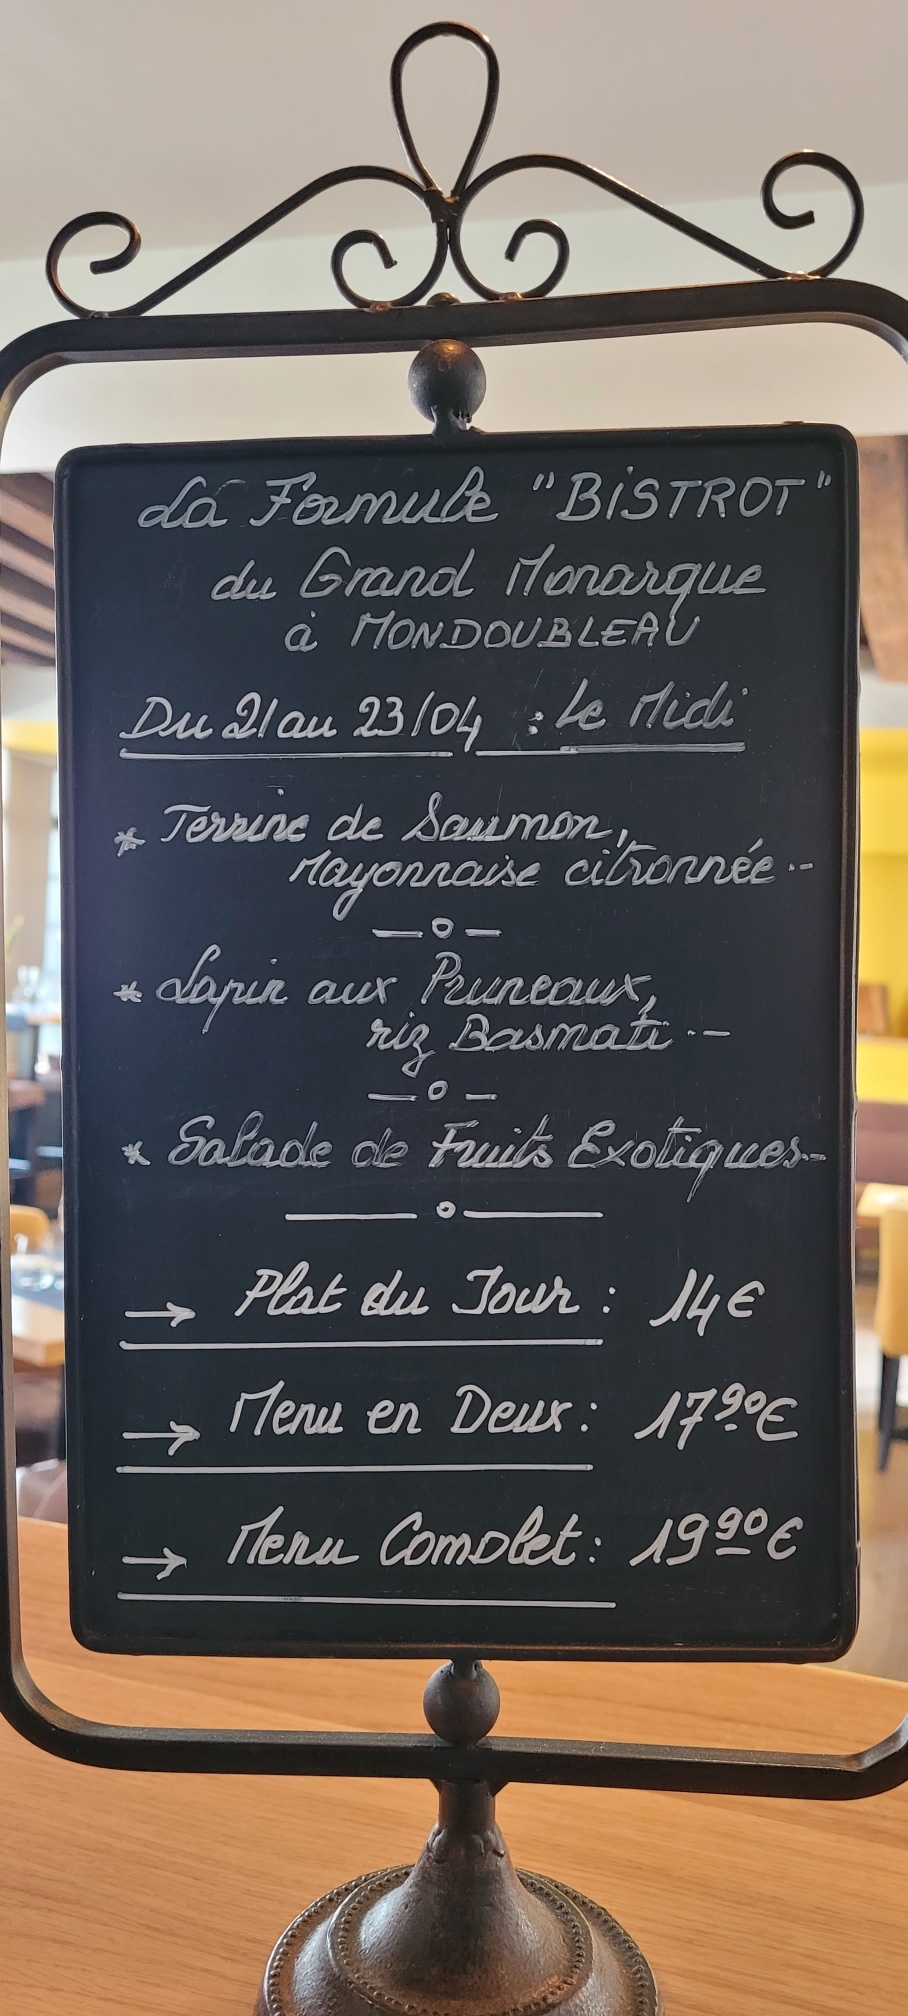 La Formule "BiSTROT"
du Grand Monarque
à MONDOUBLEAU
Du 21 au 23/04 : Le Midi
* Terrine de Saumon,
Mayonnaise citronnée--
—o—
* Lapin aux Pruneaux,
riz Basmati --
—o—
* Salade de Fruits Exotiques--
—o—
→ Plat du Jour : 14€
→ Menu en Deux : 17 90€
→ Menu Complet : 19 90€